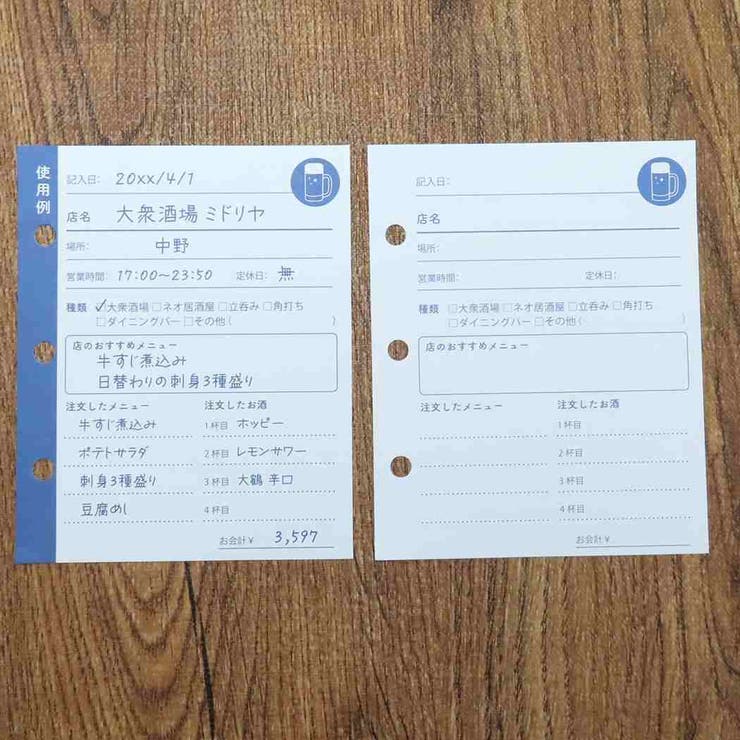 使用例
記入日: 20xx/4/1
店名 大衆酒場 ミドリヤ
場所: 中野
営業時間: 17:00〜23:50 定休日: 無
種類 ✓大衆酒場 □ネオ居酒屋 □立呑み □角打ち
□ダイニングバー □その他( )
店のおすすめメニュー
牛すじ煮込み
日替わりの刺身3種盛り
注文したメニュー 注文したお酒
牛すじ煮込み 1杯目 ホッピー
ポテトサラダ 2杯目 レモンサワー
刺身3種盛り 3杯目 大鶴 辛口
豆腐めし 4杯目
お会計¥ 3,597
記入日:
店名
場所:
営業時間: 定休日:
種類 □大衆酒場 □ネオ居酒屋 □立呑み □角打ち
□ダイニングバー □その他( )
店のおすすめメニュー
注文したメニュー 注文したお酒
1杯目
2杯目
3杯目
4杯目
お会計¥